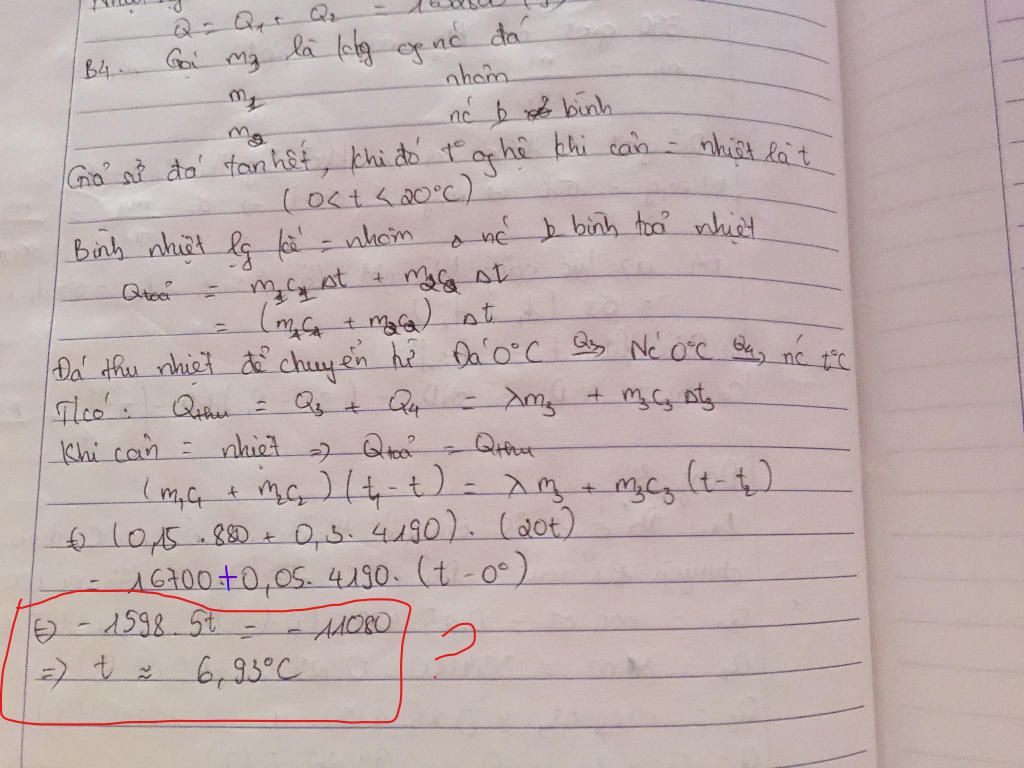 Q = Q₁ + Q₂ =
B4. Gọi m₃ là klg of nć đá
m₁ nhôm
m₂ nć b bình
Giả sử đá tan hết, khi đó t° of hệ khi cân = nhiệt là t
(0 < t < 20°C)
Bình nhiệt lg kế = nhôm nć b bình toả nhiệt
Qtoả = m₁c₁ Δt + m₂c₂ Δt
= (m₁c₁ + m₂c₂) Δt
Đá thu nhiệt để chuyển từ Đá 0°C Q₃→ Nć 0°C Q₄→ nć t°C
Tacó: Qthu = Q₃ + Q₄ = λm₃ + m₃c₃ Δt₃
Khi cân = nhiệt ⇒ Qtoả = Qthu
(m₁c₁ + m₂c₂)(t₁ - t) = λm₃ + m₃c₃ (t - t₂)
⇔ (0,15 . 880 + 0,3. 4190). (20t)
= 16700 + 0,05. 4190. (t - 0°)
⇔ - 1598.5t = - 11080
⇒ t ≈ 6,93°C
?